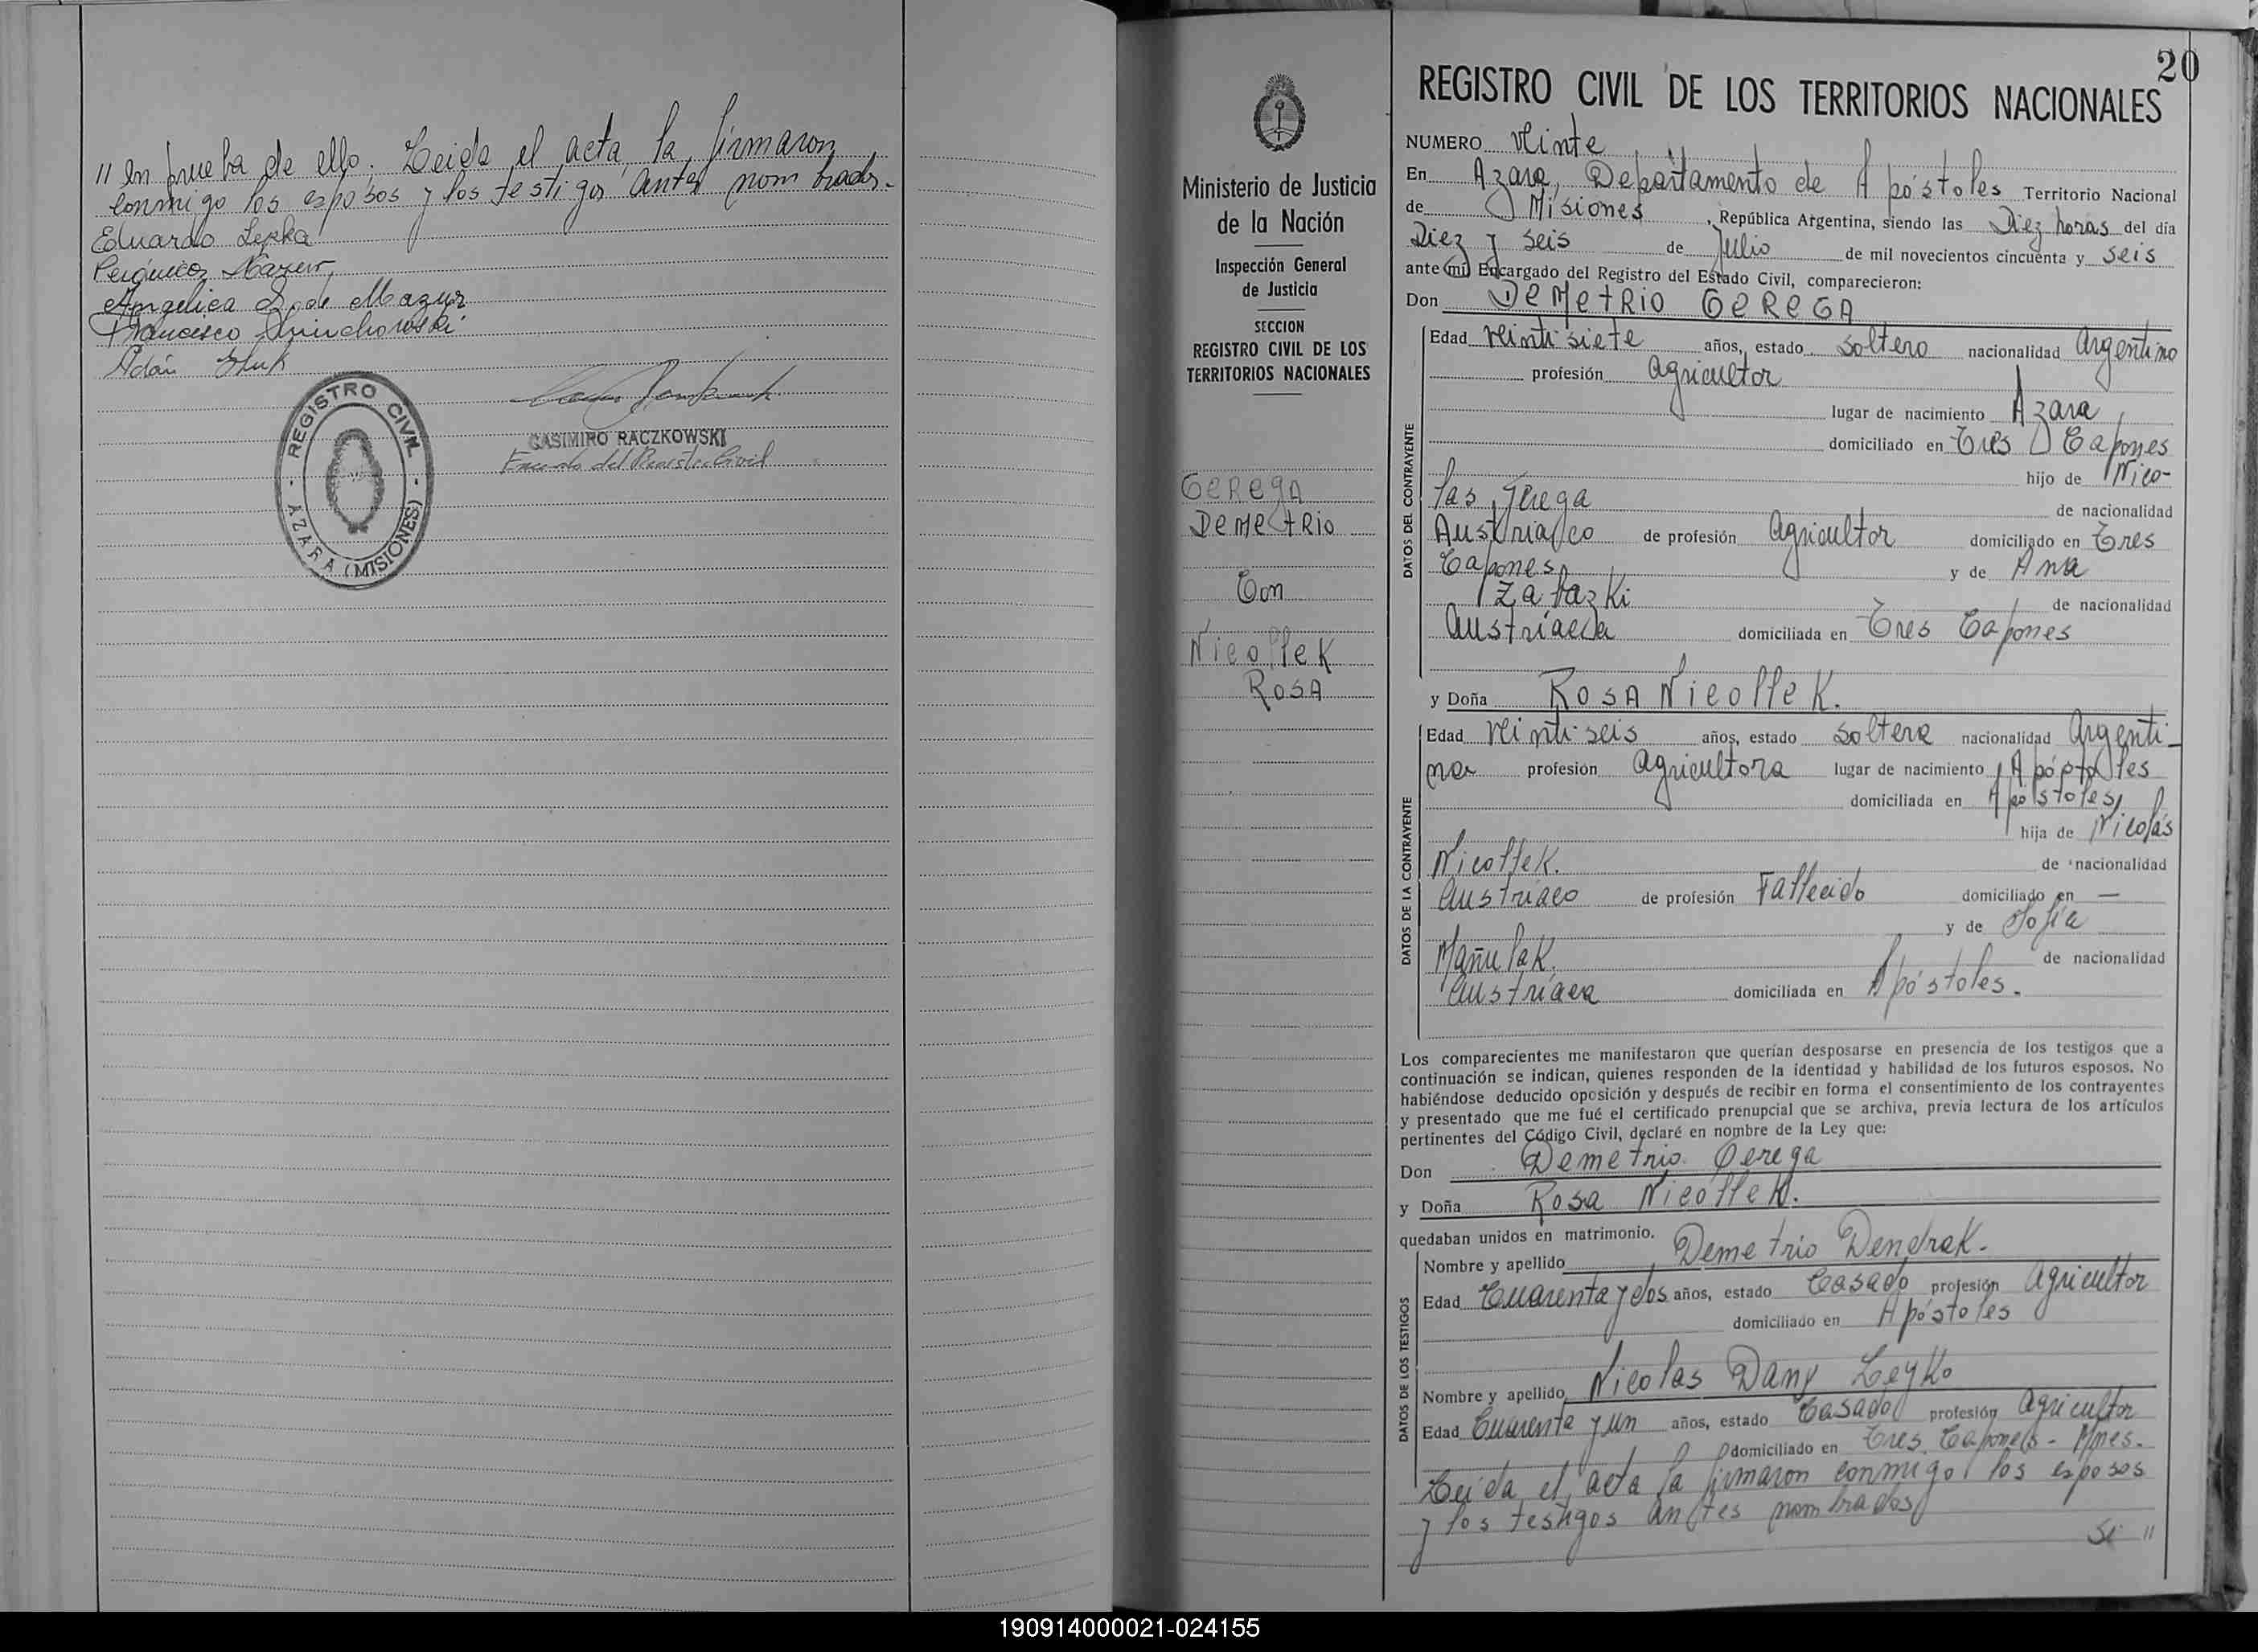 // en prueba de ello. Leida el acta la firmaron
conmigo los esposos y los testigos antes nombrados.-
Eduardo Lepka
Angélica S. de Mazur
Francisco
Adán
REGISTRO CIVIL
AZARA (MISIONES)
CASIMIRO RACZKOWSKI
Ministerio de Justicia
de la Nación
Inspección General
de Justicia
SECCION
REGISTRO CIVIL DE LOS
TERRITORIOS NACIONALES
GEREGA
DEMETRIO
Con
Nicollek
ROSA
20
REGISTRO CIVIL DE LOS TERRITORIOS NACIONALES
NUMERO Veinte
En Azara, Departamento de Apóstoles Territorio Nacional
de Misiones, República Argentina, siendo las Diez horas del día
Diez y seis de Julio de mil novecientos cincuenta y seis
ante mí Encargado del Registro del Estado Civil, comparecieron:
Don DEMETRIO GEREGA
DATOS DEL CONTRAYENTE
Edad Veintisiete años, estado soltero nacionalidad Argentino
profesión Agricultor
lugar de nacimiento Azara
domiciliado en Tres Capones
hijo de Nico-
las Gerega de nacionalidad
Austriaco de profesión Agricultor domiciliado en Tres
Capones y de Ana
Zalazki de nacionalidad
Austriaca domiciliada en Tres Capones
y Doña ROSA Nicollek.
DATOS DE LA CONTRAYENTE
Edad Veintiseis años, estado soltera nacionalidad Argenti-
na profesión Agricultora lugar de nacimiento Apóstoles
domiciliada en Apóstoles
hija de Nicolás
Nicollek. de nacionalidad
Austriaco de profesión Fallecido domiciliado en —
y de Sofía
Mañulak. de nacionalidad
Austriaca domiciliada en Apóstoles.
Los comparecientes me manifestaron que querían desposarse en presencia de los testigos que a
continuación se indican, quienes responden de la identidad y habilidad de los futuros esposos. No
habiéndose deducido oposición y después de recibir en forma el consentimiento de los contrayentes
y presentado que me fué el certificado prenupcial que se archiva, previa lectura de los artículos
pertinentes del Código Civil, declaré en nombre de la Ley que:
Don Demetrio Gerega
y Doña Rosa Nicollek.
quedaban unidos en matrimonio.
DATOS DE LOS TESTIGOS
Nombre y apellido Demetrio Dendrak.
Edad Cuarenta y dos años, estado Casado profesión Agricultor
domiciliado en Apóstoles
Nombre y apellido Nicolas Dany Leyko
Edad Cuarenta y un años, estado Casado profesión Agricultor
domiciliado en Tres Capones - Mnes.
Leida el acta la firmaron conmigo los esposos
y los testigos antes nombrados
Si //
190914000021-024155